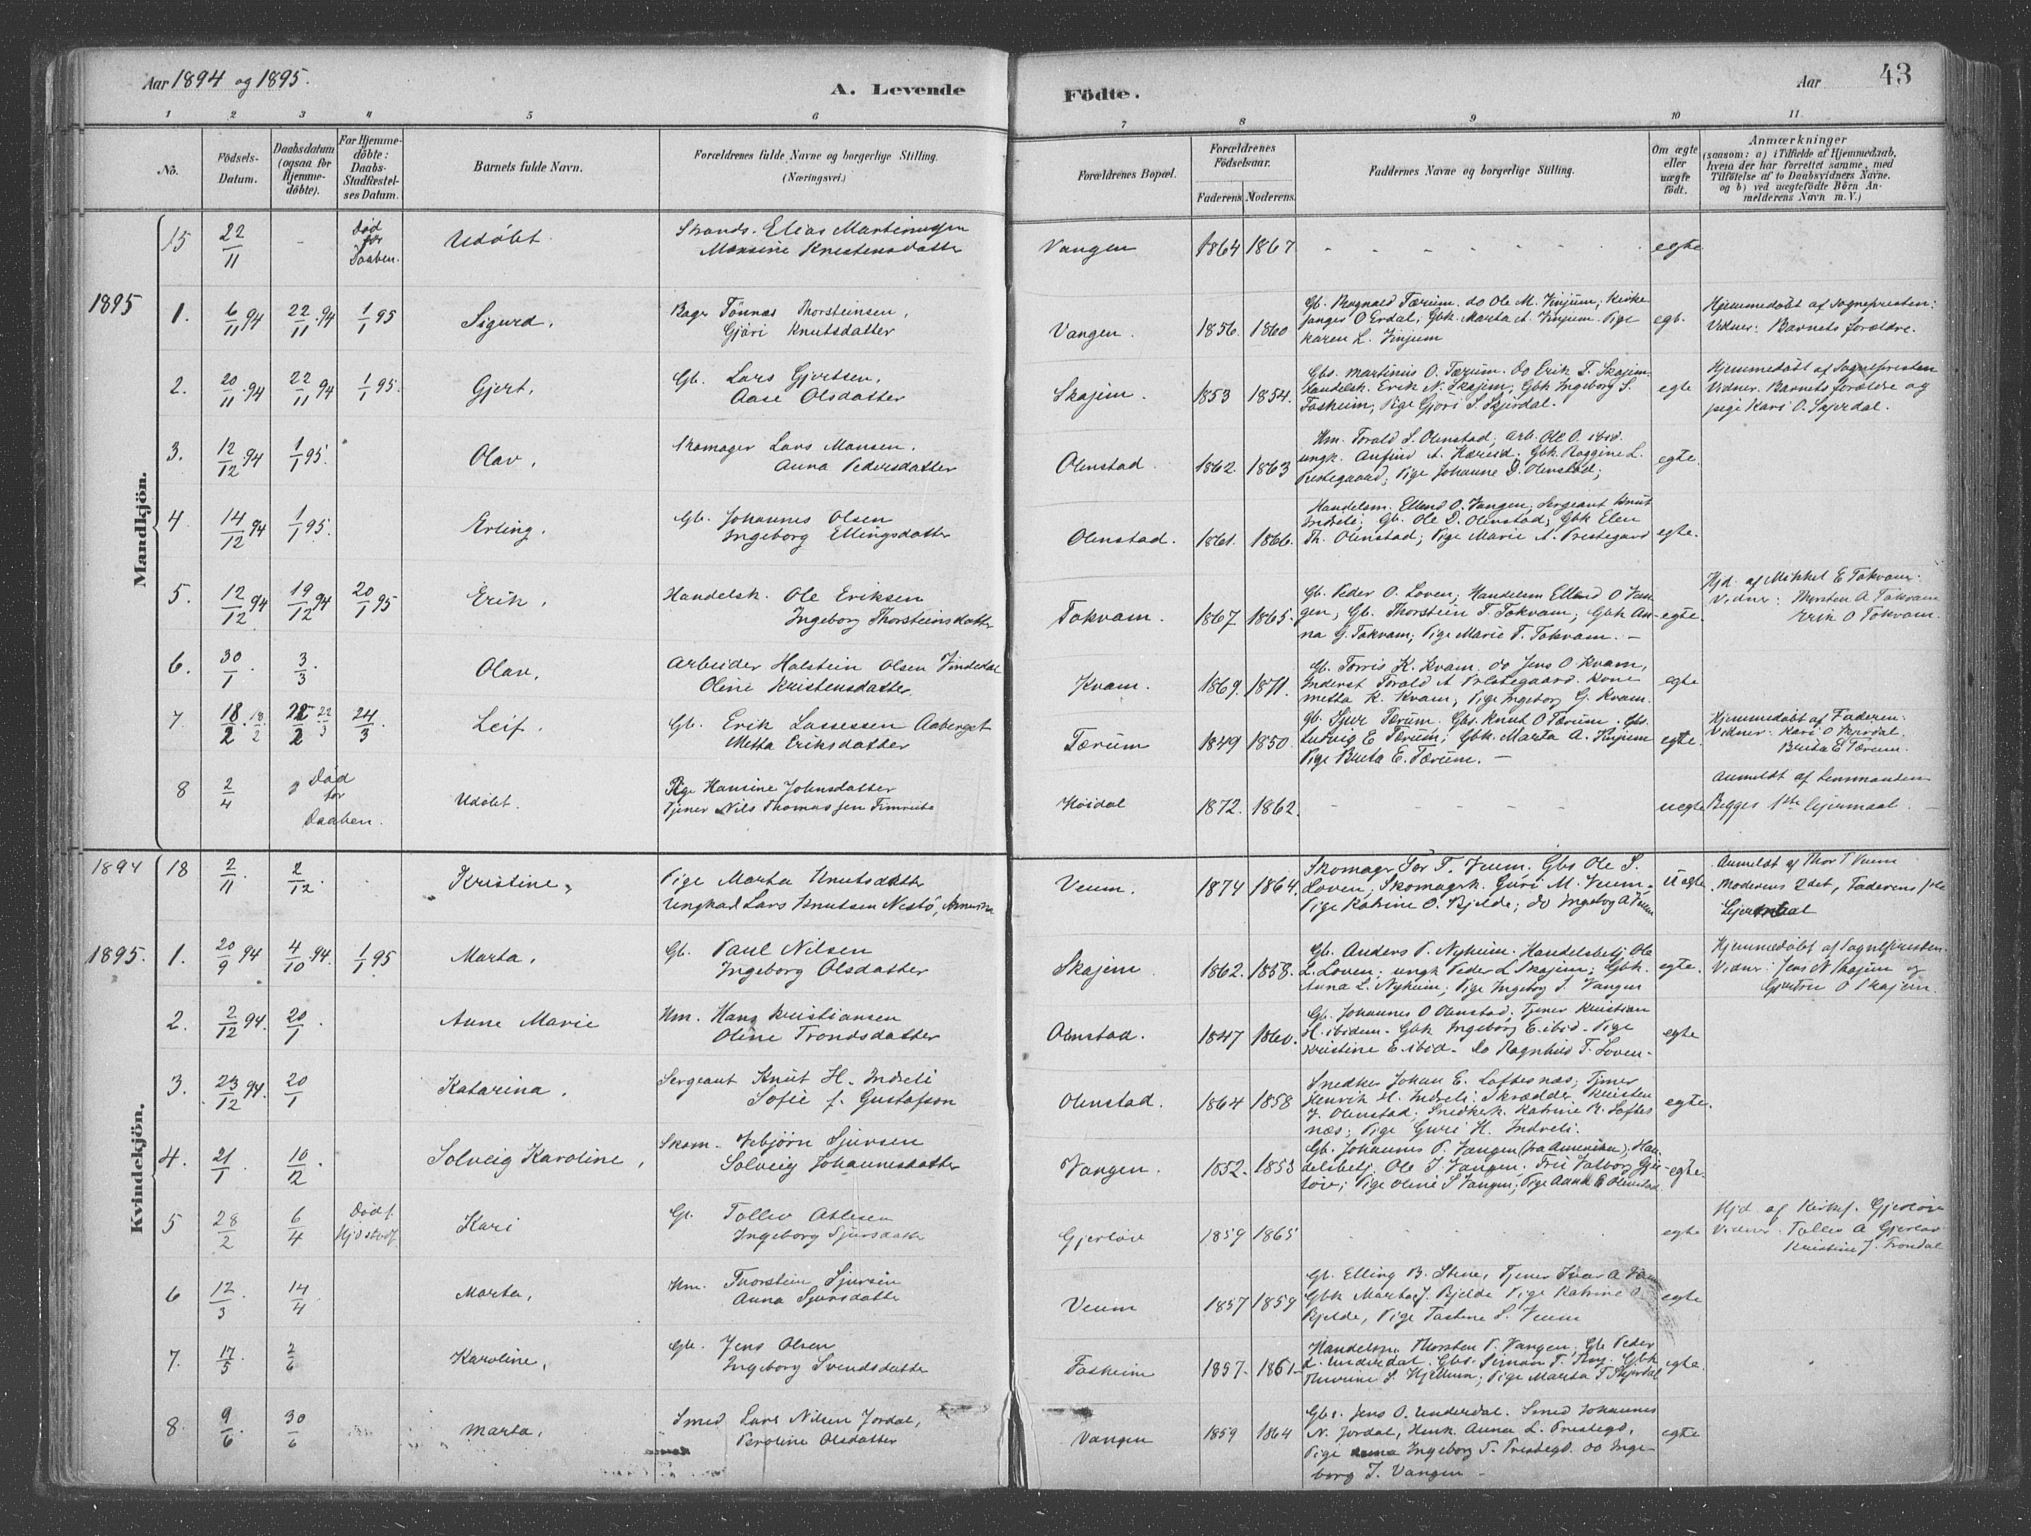 Aar 1894 og 1895.
A. Levende Födte.
Aar 43
1 2 3 4 5 6 7 8 9 10 11.
No.
Födsels-Datum.
Daabsdatum (ogsaa for Hjemmedöbte).
For Hjemmedöbte: Daabs-Stadfæstelses Datum.
Barnets fulde Navn.
Forældrenes fulde Navne og borgerlige Stilling. (Næringsvei.)
Forældrenes Bopæl.
Forældrenes Födselsaar.
Faderens. Moderens.
Faddernes Navne og borgerlige Stilling.
Om ægte eller uægte födt.
Anmærkninger
(saasom: a) i Tilfælde af Hjemmedaab, hvem der har forrettet samme, med Tilföielse af to Daabsvidners Navne, og b) ved uægtefödte Börn Anmelderens Navn m. V.)
Mandkjön.
15 22/11 - Död før Daaben. Udöbt. Strands. Elias Martinusen
Monsine Kristensdatter Vangen 1864 1867 egte
1895 1. 6/11 94 22/11 94 1/1 95 Sigurd, Bager Tönnas Thorsteinsen,
Gjöri Knutsdatter Vangen. 1856. 1860 Gb. Ragnald Tærum, do Ole M. Vinjum, Kirke
sanger O Erdal, Gbk. Marta A. Vinjum. Pige
Karen L. Vinjum egt. Hjemmedöbt af Sognepresten:
Vidner: Barnets forældre.
2. 20/11 94 22/11 94 1/1 95. Gjert, Gb. Lars Gjertsen,
Aase Olsdatter Skajem. 1853 1854. Gbs. Martinus O. Tærum. Do Erik T. Skajem.
Handelsk. Erik N. Skajem, Gbk Ingeborg S.
Taskeim, Pige Gjöri S. Skjerdal. egte Hjemmedöbt af Sognepresten
Vidner. Barnets forældre og
pige Kari O. Skjerdal.
3. 12/12 94 1/1 95. Olav, Skomager Lars Monsen.
Anna Pedersdatter Olnstad. 1862. 1863 Hm. Torald S. Olnstad, Arb. Ole O. ibid.
ungk. Anfind A. Gbk Raggine L.
Prestegaard; Pige Johanne D. Olnstad; egte.
4 14/12 94 1/1 95. Erling. Gb. Johannes Olsen
Ingeborg Ellingsdatter Olnstad. 1861. 1866. Handelsm. Ellend O. Vangen, Sergeant Knut
Indreli, Gb. Ole D. Olnstad; Gbk Elen
Th. Olnstad; Pige Marie A. Prestegard egte.
5. 12/12 94 19/12 94 20/1 95 Erik, Handelsk. Ole Eriksen
Ingeborg Thorsteinsdatter Tokvam. 1867 1865. Gb. Peder O. Loven, Handelsm Ellend O Van-
gen, Gb. Thorstein T. Tokvam; Gbk An-
na G. Tokvam; Pige Marie T. Tokvam. egte. Hjd. af Mikkel E Tokvam.
Vidner: Thorsten A Tokvam
Erik O Tokvam.
6. 30/1. 3/3. Olav, Arbeider Holstein Olsen Vindedal
Oline Kristensdatter. Kvam. 1869. 1871. Gb. Torris K. Kvam, do Jens O Kvam,
Inderst Torald A Prestegaard. Kone
Metta K. Kvam, Pige Ingeborg G. Kvam. egte
7. 18/2 . 18/2 22/2 . 22/3 24/3 Leif, Gb. Erik Lassesen Aaberget
Metta Eriksdatter Tærum 1849 1850. Gb. Sjur Tærum. Gbs. Knut O Tærum. Gbs.
Ludvig E Tærum; Gbk. Marta A. Vinjum
Pige Brita E. Tærum. egte. Hjemmedöbt af Faderen.
Vidner. Kari O Skjerdal.
Brita E Tærum.
8 2/4 Död før Daaben. Udöbt. Pige Hansine Johnsdatter
Tjener Nils Thomassen Timreite Höidal 1872. 1862. uegte Anmeldt af Lensmanden
Begges 1ste Leiermaal.
Kvindekjön.
1894 18 2/11 2/12 Kristine, Pige Marta Knutsdatter
Ungkarl Lars Knutsen Nestö, Amerika Veum. 1874 1864. Skomagr Tor T. Veum, Gbs Ole S.
Loven, Skomagrk. Guri M. Veum.
Pige Katrine O. Bjelde; do Ingeborg A Veum uegte Anmeldt af Thor T Veum
Moderens 2det, Faderens 1ste
Leiermaal
1895. 1. 20/9 94 4/10 94. 1/1 95 Marta, Gb. Paul Nilsen
Ingeborg Olsdatter Skajem. 1862. 1858. Gb. Anders P. Nyheim. Handelsbetj Ole
L. Loven; ungk Peder L Skajem; Gbk.
Anna L. Nyheim; Pige Ingeborg J. Vangen egte. Hjemmedöbt af Sognepresten.
Vidner: Jens N Skajem og
Gjertine O Skajem.
2. 2/12 94. 20/1. Anne Marie Hm. Hans Kristiansen
Oline Trondsdatter Olnstad. 1847 1860. Gb. Johannes O Olnstad, Tjener Kristian
H. ibidem. Gbk Ingeborg E. ibid. Pige
Kristine E. ibid. Do Ragnhild T. Loven. egte
3. 23/12 94. 20/1 Katarina, Sergeant Knut H. Indreli
Sofie f. Gustafson Olnstad. 1864 1858 Snedker Johan E. Loftesnæs, Tjener
Henrik H. Indreli. Skrædder Kristen
J. Olnstad, Snedkerk. Katrine R. Loftes
næs; Pige Guri H. Indreli. egte.
4. 21/1 10/12. Solveig Karoline, Skom. Vebjørn Sjursen
Solveig Johannesdatter Vangen. 1852. 1853 Gb. Johannes P. Vangen (fra Amerika); Han-
delsbetj. Ole J. Vangen. Frk Valborg Gjer-
löw; Pige Oline S Vangen; Pige Anna E Olnstad egte.
5 28/2 6/4 Död f. Hjdstadf. Kari Gb. Tollev Atlesen
Ingeborg Sjursdatter Gjerlöw 1859 1865 egte Hjd af Kirkes. Gjerlöw
Vidner: Tollev A Gjerlöw
Kristine J. Frondal
6 12/3. 14/4 Marta, Hm. Thorstein Sjursen
Anna Sjursdatter Veum 1857 1859 Gb. Elling B. Stene, Tjener Ivar A Veum
Gbk Marta J. Bjelde Pige Katrine O.
Bjelde, Pige Torbine S. Veum egte
7. 17/5 2/6 Karoline, Gb. Jens Olsen
Ingeborg Svendsdatter Foskeim 1857. 1861. Handelsm Thorsten P. Vangen, Gb. Peder
L. Underdal, Gbs. Simon T. Gbk
S. Pige Marta T Skjerdal egte.
8. 9/6 30/6 Marta, Smed Lars Nilsen Jordal,
Peroline Olsdatter Vangen 1859 1864 Gbs. Jens O. Underdal. Smed Johannes
N. Jordal, Anna L. Prestegd,
Pige Ingeborg P. Prestegd. do Inge-
borg J. Vangen egte